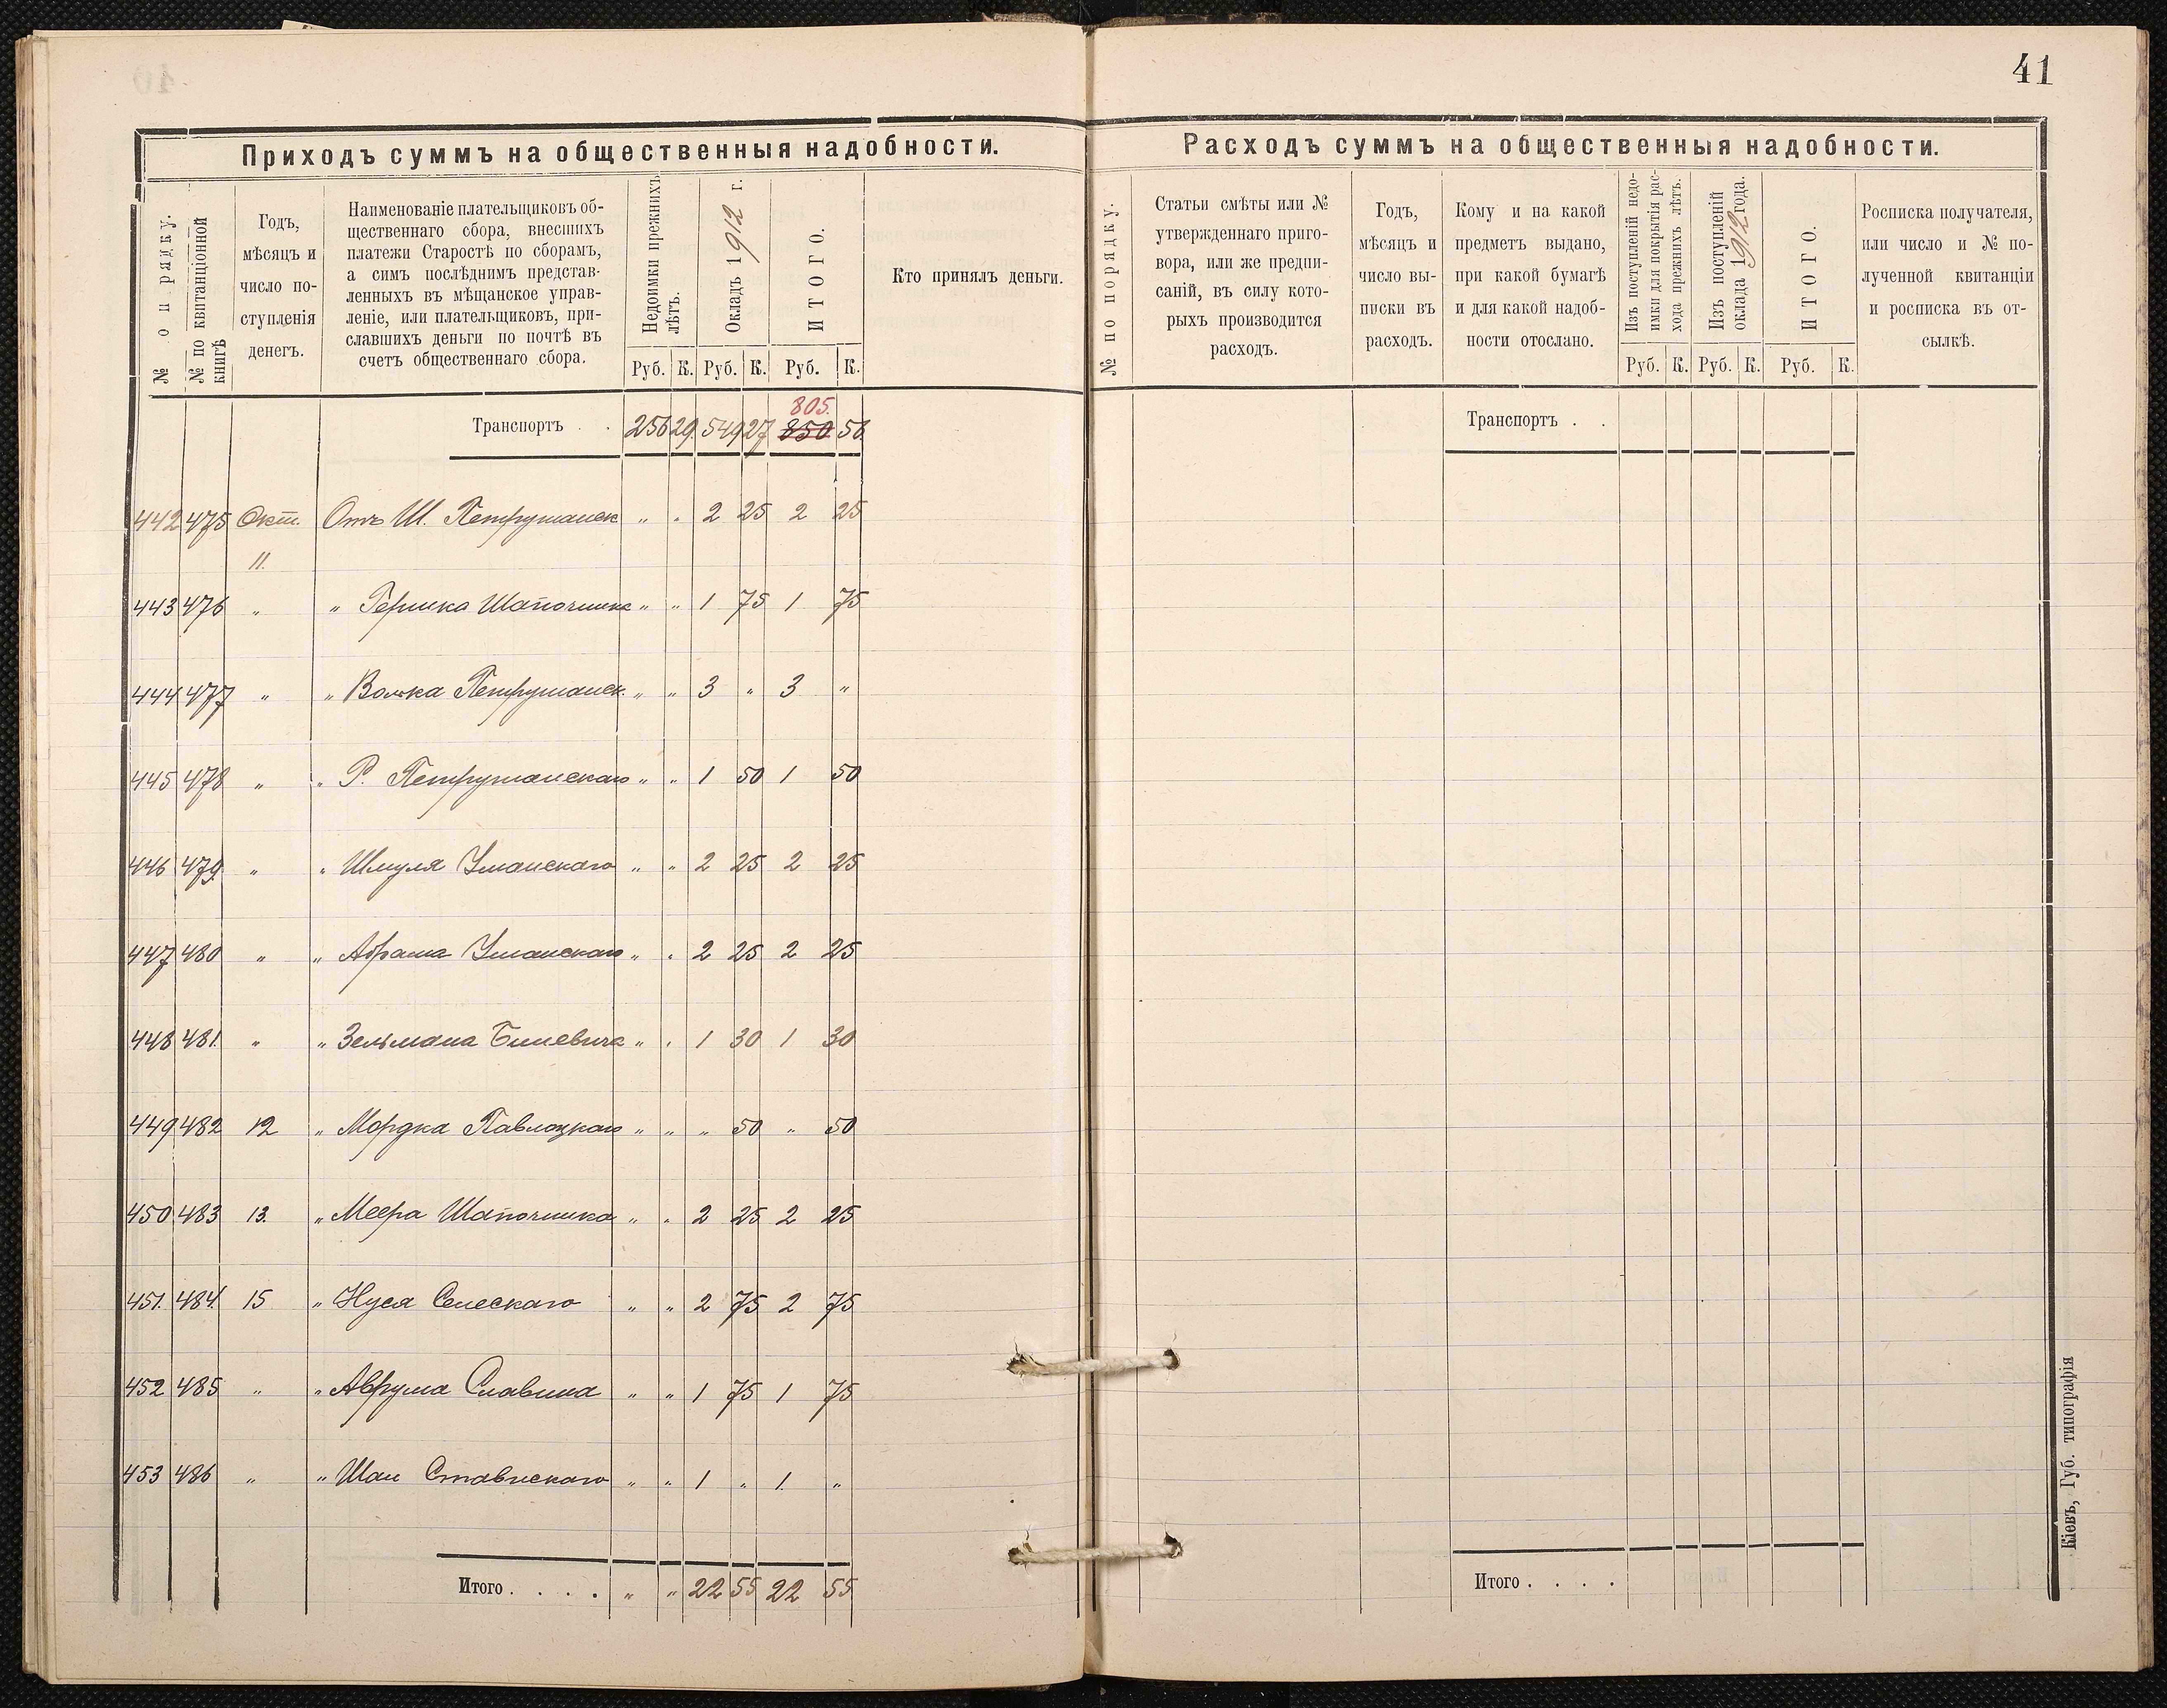 41
Приходъ суммъ на общественныя надобности.
№ по рядку.
№ по квитанціонной
книгѣ
Годъ,
мѣсяцъ и
число по-
ступленія
денегъ.
Наименованіе плательщиковъ об-
щественнаго сбора, внесшихъ
платежи Старостѣ по сборамъ,
а симъ послѣднимъ представ-
ленныхъ въ мѣщанское управ-
леніе, или плательщиковъ, при-
славшихъ деньги по почтѣ въ
счетъ общественнаго сбора.
Недоимки прежнихъ
лѣтъ.
Окладъ 1912 г.
ИТОГО.
Кто принялъ деньги.
Руб. К. Руб. К. Руб. К.
805.
Транспортъ . . 256 29 549 27 850 56
442 475 Окт. Отъ Ш. Петрушанск " " 2 25 2 25
11.
443 476 " " Гершка Шапочника " " 1 75 1 75
444 477 " " Волька Петрушанск. " " 3 " 3 "
445 478 " " Р. Петрушанскаго " " 1 50 1 50
446 479 " " Шмуля Уманскаго " " 2 25 2 25
447 480 " " Абрама Уманскаго " " 2 25 2 25
448 481. " " Зельмана " " 1 30 1 30
449 482 12 " Мордка Паволоцкаго " " " 50 " 50
450 483 13. " Меера Шапочника " " 2 25 2 25
451. 484. 15 " Нуся " " 2 75 2 75
452 485 " " Аврума Славина " " 1 75 1 75
453 486 " " Шаи Ставискаго " " 1 " 1. "
Итого . . . . " " 22 55 22 55
Расходъ суммъ на общественныя надобности.
№ по порядку.
Статьи смѣты или №
утвержденнаго приго-
вора, или же предпи-
саній, въ силу кото-
рыхъ производится
расходъ.
Годъ,
мѣсяцъ и
число вы-
писки въ
расходъ.
Кому и на какой
предметъ выдано,
при какой бумагѣ
и для какой надоб-
ности отослано.
Изъ поступленій недо-
имки для покрытія рас-
хода прежнихъ лѣтъ.
Изъ поступленій
оклада 1912 года.
ИТОГО.
Росписка получателя,
или число и № по-
лученной квитанціи
и росписка въ от-
сылкѣ.
Руб. К. Руб. К. Руб. К.
Транспортъ . .
Итого . . . .
Кіевъ, Губ. типографія